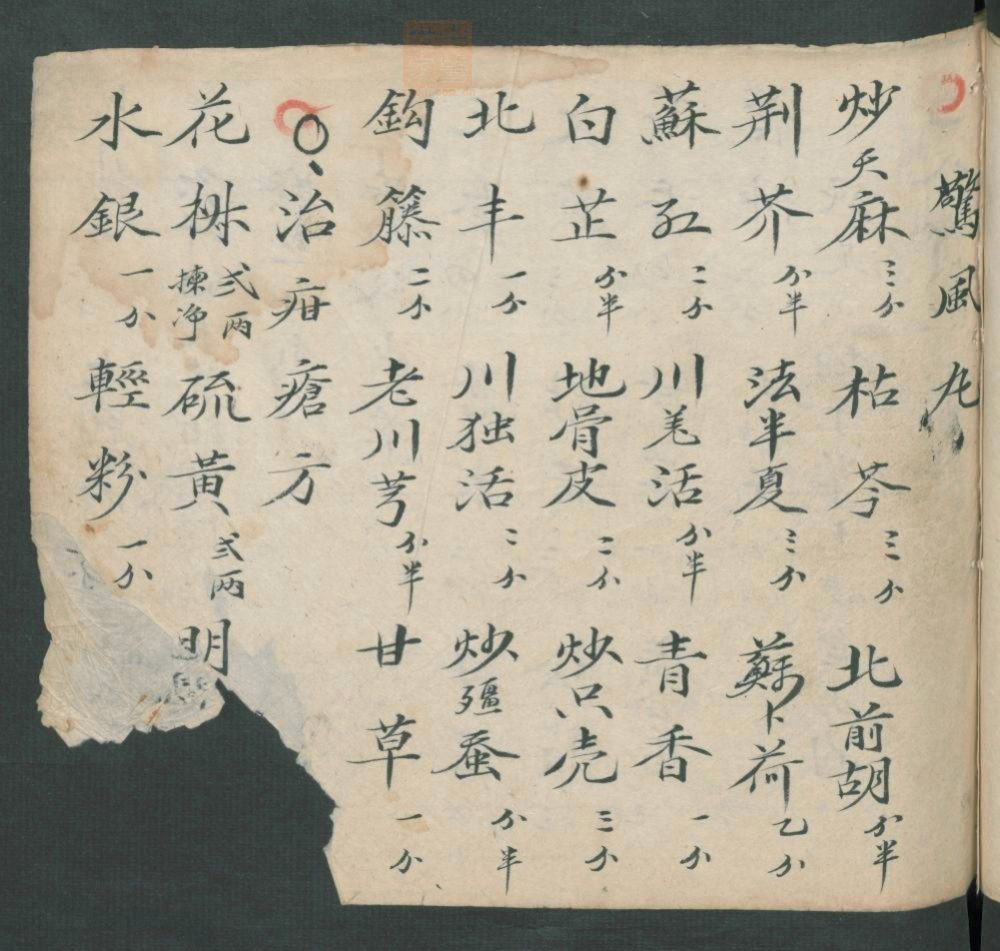 驚風丸
炒天麻三分 枯芩三分 北前胡分半
荆芥分半 法半夏三分 蘇卜荷乙分
蘇紅二分 川羌活分半 青香一分
白芷分半 地骨皮二分 炒只壳三分
北丰一分 川独活二分 炒殭蚕分半
鈎籐二分 老川芎分半 甘草一分
治疳瘡方
花椒弍两揀净 硫黃弍两 明
水銀一分 輕粉一分